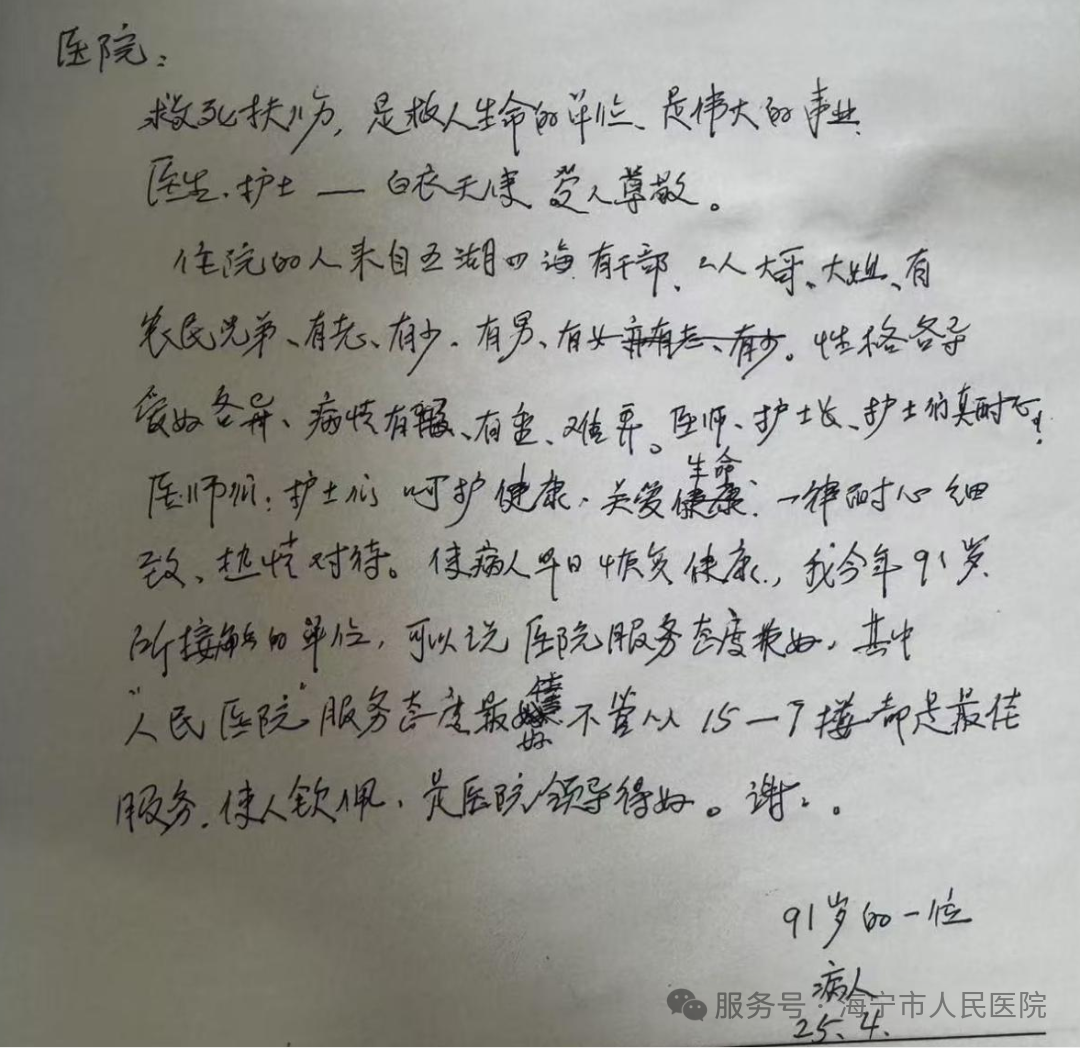 医院：
救死扶伤，是救人生命的单位、是伟大的事业，
医生、护士——白衣天使 受人尊敬。
住院的人来自五湖四海 有干部、工人大哥、大姐、有
农民兄弟、有老、有少、有男、有女 亦有老、有少。性格各异
爱好各异、病情有轻、有重、难弄。医师、护士长、护士们真耐心！
生命
医师们：护士们 呵护健康、关爱健康. 一律耐心细
致、热情对待。使病人早日恢复健康.，我今年91岁
所接触的单位，可以说 医院服务态度最好，其中
"人民医院"服务态度最佳 不管从15—7楼都是最佳
好
服务，使人钦佩，是医院领导得好。谢：。
91岁的一位
病人
25.4.
服务号·海宁市人民医院